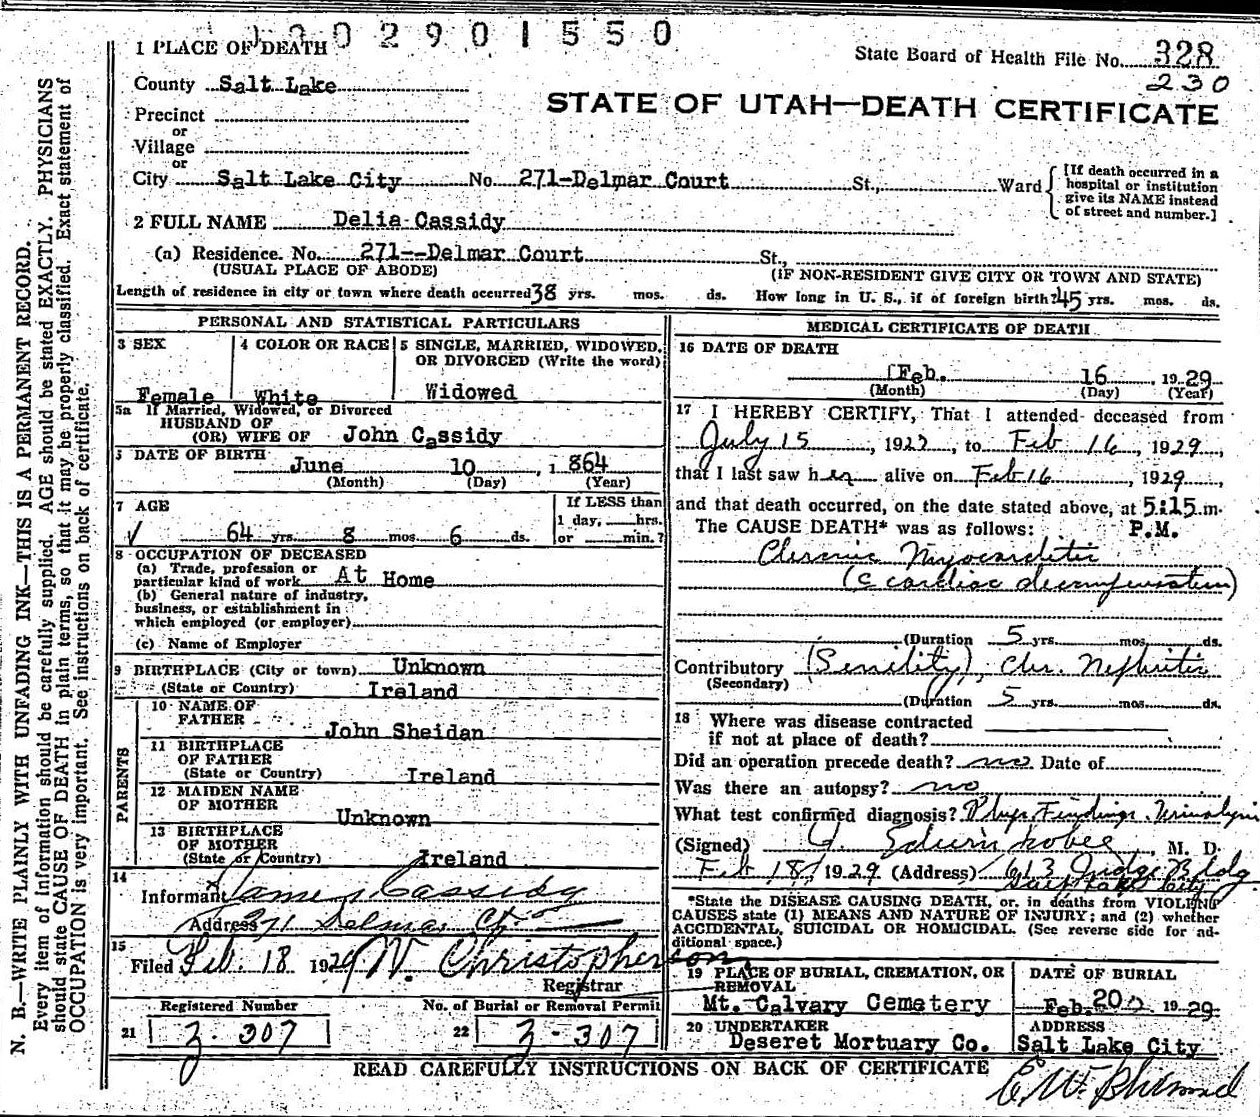 1 3 0 2 9 0 1 5 5 0
1 PLACE OF DEATH
State Board of Health File No. 328
230
County Salt Lake
STATE OF UTAH—DEATH CERTIFICATE
Precinct
or
Village
or
City Salt Lake City No. 271-Delmar Court St., Ward
[If death occurred in a
hospital or institution
give its NAME instead
of street and number.]
2 FULL NAME Delia Cassidy
(a) Residence. No. 271--Delmar Court St.,
(USUAL PLACE OF ABODE) (IF NON-RESIDENT GIVE CITY OR TOWN AND STATE)
Length of residence in city or town where death occurred 38 yrs. mos. ds. How long in U. S., if of foreign birth? 45 yrs. mos. ds.
PERSONAL AND STATISTICAL PARTICULARS
3 SEX
Female
4 COLOR OR RACE
White
5 SINGLE, MARRIED, WIDOWED,
OR DIVORCED (Write the word)
Widowed
5a If Married, Widowed, or Divorced
HUSBAND OF
(OR) WIFE OF John Cassidy
DATE OF BIRTH
June 10, 1864
(Month) (Day) (Year)
7 AGE
64 yrs. 8 mos. 6 ds.
If LESS than
1 day, hrs.
or min.?
8 OCCUPATION OF DECEASED
(a) Trade, profession or
particular kind of work At Home
(b) General nature of industry,
business, or establishment in
which employed (or employer)
(c) Name of Employer
9 BIRTHPLACE (City or town) Unknown
(State or Country) Ireland
PARENTS
10 NAME OF
FATHER
John Sheidan
11 BIRTHPLACE
OF FATHER
(State or Country) Ireland
12 MAIDEN NAME
OF MOTHER
Unknown
13 BIRTHPLACE
OF MOTHER
(State or Country) Ireland
14
Informant James Cassidy
Address 271 Delmar Ct
15
Filed Feb. 18 1929 W. Christopherson
Registrar
Registered Number
21 307
No. of Burial or Removal Permit
22 307
MEDICAL CERTIFICATE OF DEATH
16 DATE OF DEATH
Feb. 16, 1929
(Month) (Day) (Year)
17 I HEREBY CERTIFY, That I attended deceased from
July 15, 1923, to Feb 16, 1929,
that I last saw her alive on Feb 16, 1929,
and that death occurred, on the date stated above, at 5:15 m.
The CAUSE DEATH* was as follows: P.M.
Chronic Myocarditis
(c cardiac decompensation)
(Duration 5 yrs. mos. ds.
Contributory (Senility), Chr. Nephritis
(Secondary)
(Duration 5 yrs. mos. ds.
18 Where was disease contracted
if not at place of death?
Did an operation precede death? no Date of
Was there an autopsy? no
What test confirmed diagnosis? Phys Findings Urinalysis
(Signed) Edwin, M. D.
Feb 18, 1929 (Address) 613 Judge Bldg
Salt Lake City
*State the DISEASE CAUSING DEATH, or in deaths from VIOLENT
CAUSES state (1) MEANS AND NATURE OF INJURY; and (2) whether
ACCIDENTAL, SUICIDAL OR HOMICIDAL. (See reverse side for ad-
ditional space.)
19 PLACE OF BURIAL, CREMATION, OR
REMOVAL
Mt. Calvary Cemetery
DATE OF BURIAL
Feb. 20, 1929.
20 UNDERTAKER
Deseret Mortuary Co.
ADDRESS
Salt Lake City
READ CAREFULLY INSTRUCTIONS ON BACK OF CERTIFICATE
N. B.—WRITE PLAINLY WITH UNFADING INK—THIS IS A PERMANENT RECORD.
Every item of information should be carefully supplied. AGE should be stated EXACTLY. PHYSICIANS
should state CAUSE OF DEATH in plain terms, so that it may be properly classified. Exact statement of
OCCUPATION is very important. See instructions on back of certificate.